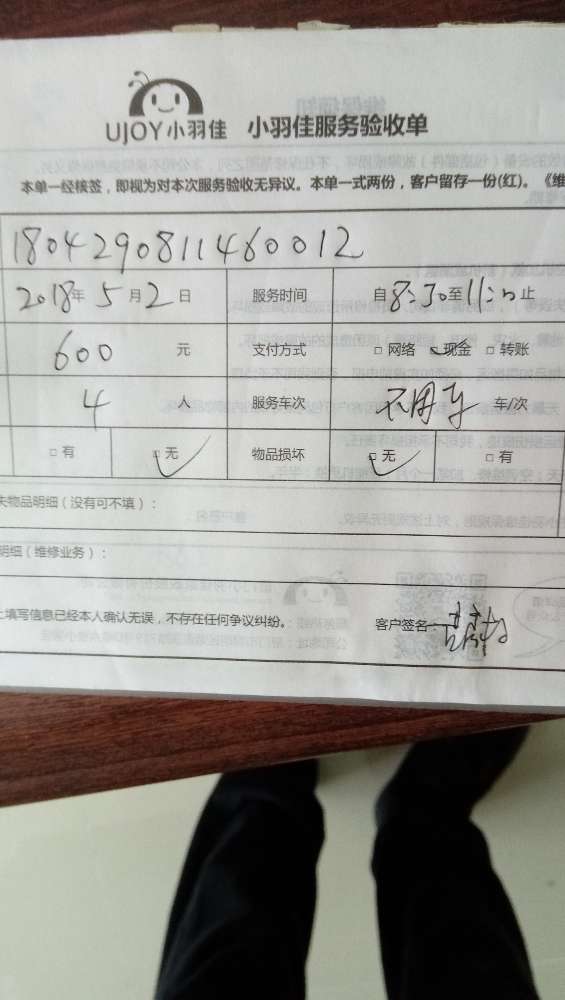 UJOY小羽佳 小羽佳服务验收单
本单一经核签，即视为对本次服务验收无异议。本单一式两份，客户留存一份(红)。《维
1804290811460012
2018年 5月2日 服务时间 自8:30至11:20止
600 元 支付方式 □ 网络 现金 □ 转账
4 人 服务车次 不用车 车/次
□ 有 □ 无 物品损坏 □ 无 □ 有
失物品明细（没有可不填）：
明细（维修业务）：
上填写信息已经本人确认无误，不存在任何争议纠纷。 客户签名：